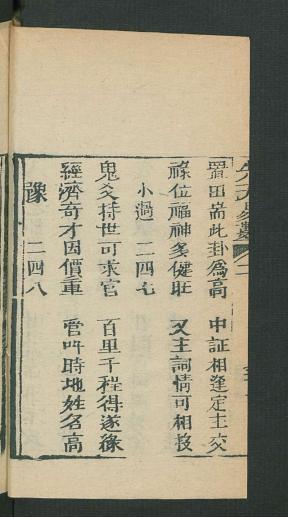 先天易數
置田當此卦為高　中証相逢定主交
祿位福神多健旺　又主詞情可相投
小過　二四七
鬼爻持世可求官　百里千程得遂緣
經濟奇才因價重　管叫時地姓名高
豫　二四八